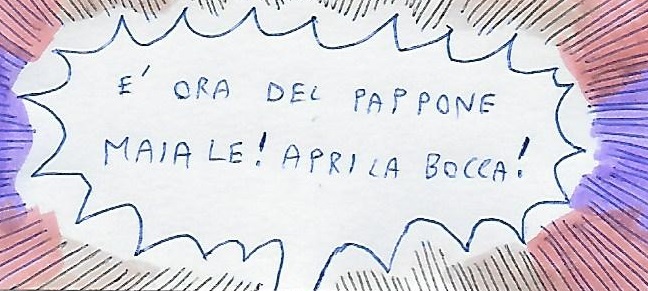 E' ORA DEL PAPPONE
MAIALE! APRI LA BOCCA!